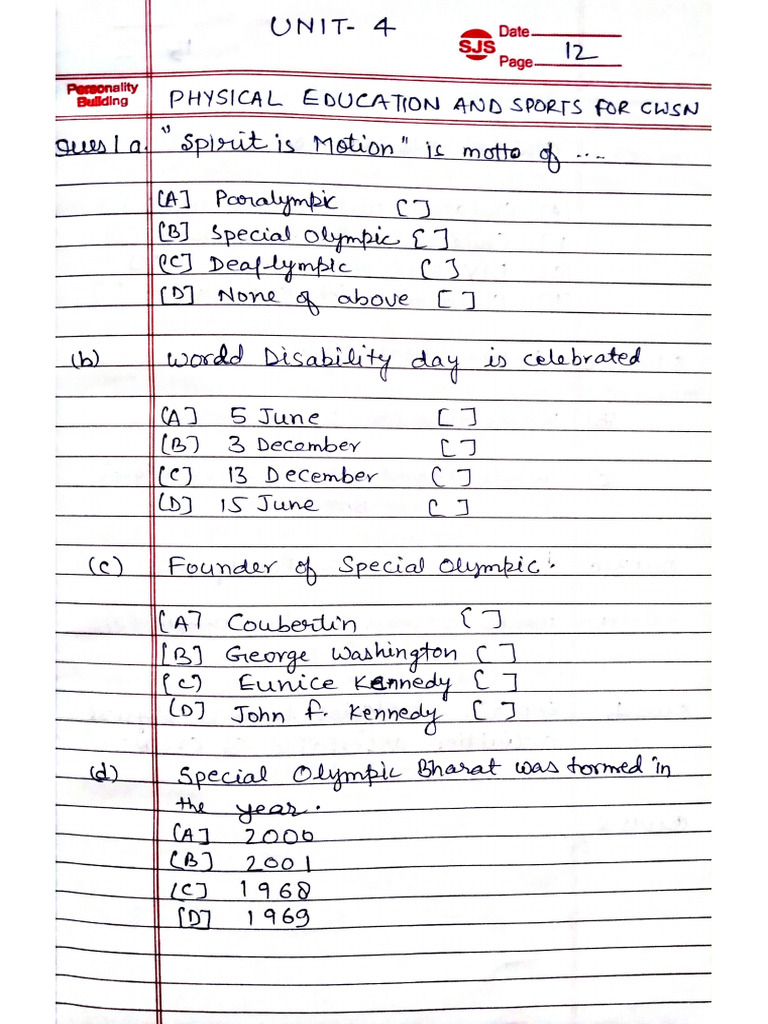 UNIT- 4
SJS
Date
Page 12
Personality Building
PHYSICAL EDUCATION AND SPORTS FOR CWSN
Ques 1 a. "Spirit is Motion" is motto of ....
[A] Paralympic [ ]
[B] Special Olympic [ ]
[C] Deaflympic [ ]
[D] None of above [ ]
(b) World Disability day is celebrated
[A] 5 June [ ]
[B] 3 December [ ]
[C] 13 December [ ]
[D] 15 June [ ]
(c) Founder of Special Olympic.
[A] Coubertin [ ]
[B] George Washington [ ]
[C] Eunice Kennedy [ ]
[D] John F. Kennedy [ ]
(d) Special Olympic Bharat was formed in
the year.
[A] 2000
[B] 2001
[C] 1968
[D] 1969